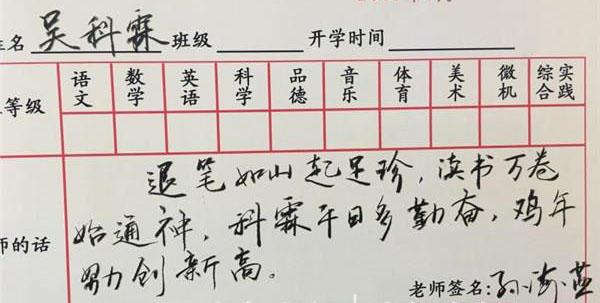 姓名 吴科霖 班级 开学时间
等级 语文 数学 英语 科学 品德 音乐 体育 美术 微机 综合实践
退笔如山起足珍，读书万卷
师的话 始通神，科霖平日多勤奋，鸡年
努力创新高。
老师签名:孙